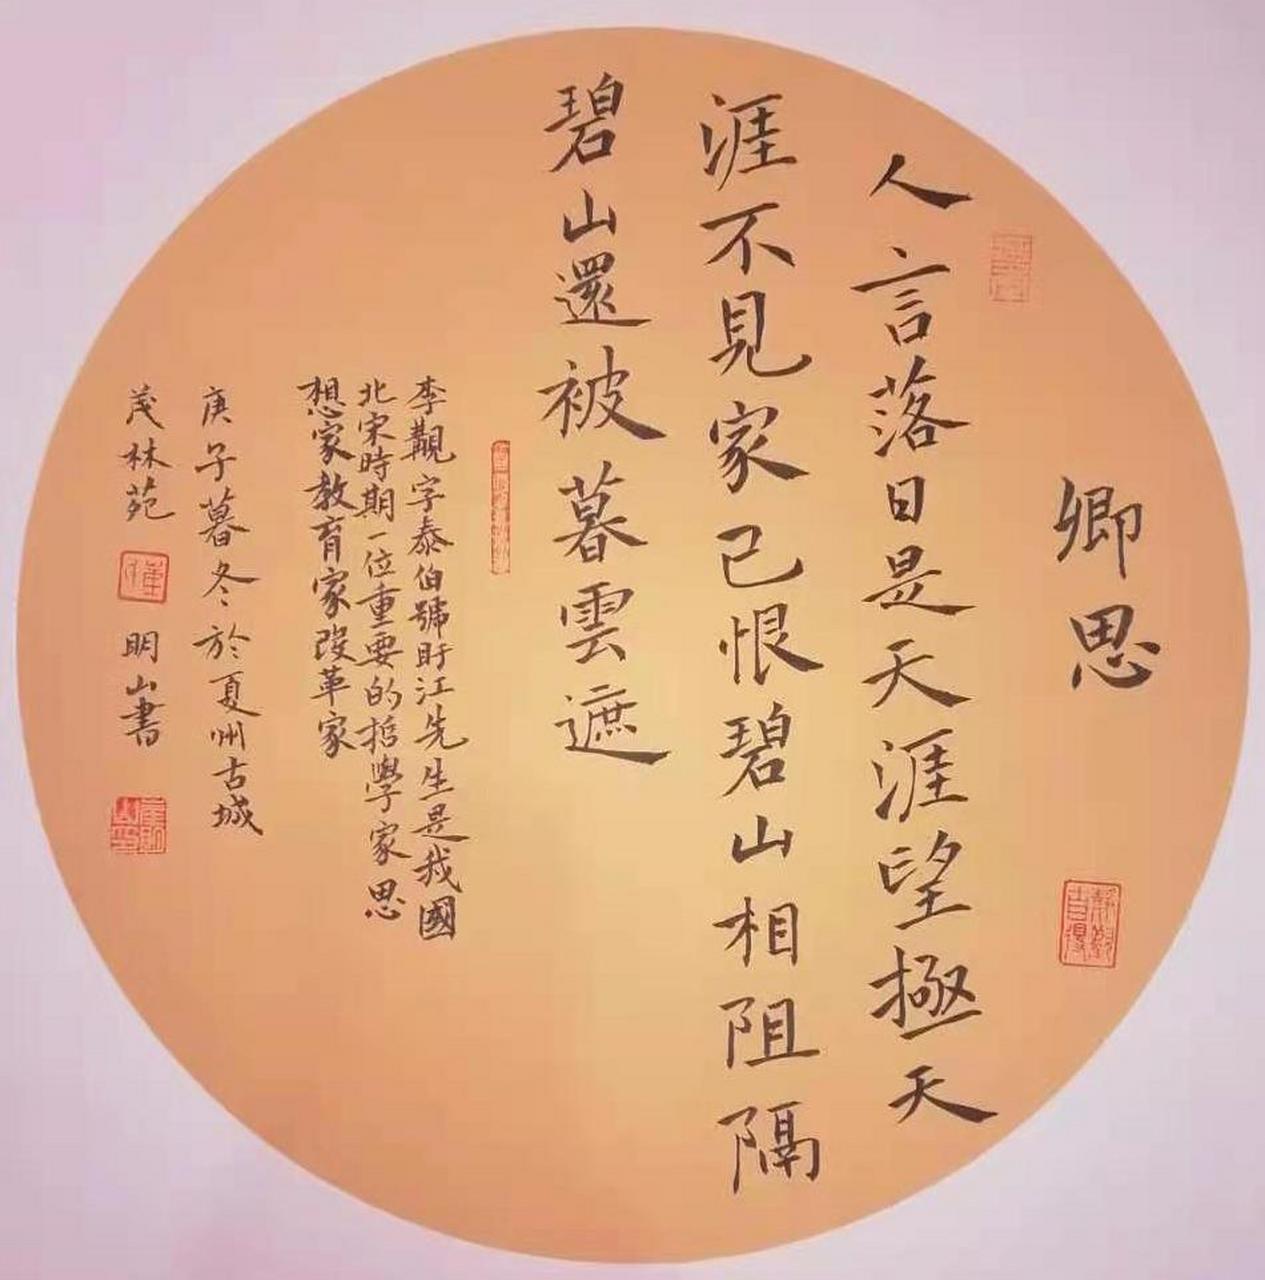 鄉思
人言落日是天涯望極天
涯不見家已恨碧山相阻隔
碧山還被暮雲遮
李覯字泰伯號盱江先生是我國
北宋時期一位重要的哲學家思
想家教育家改革家
庚子暮冬於夏州古城
茂林苑
明山書